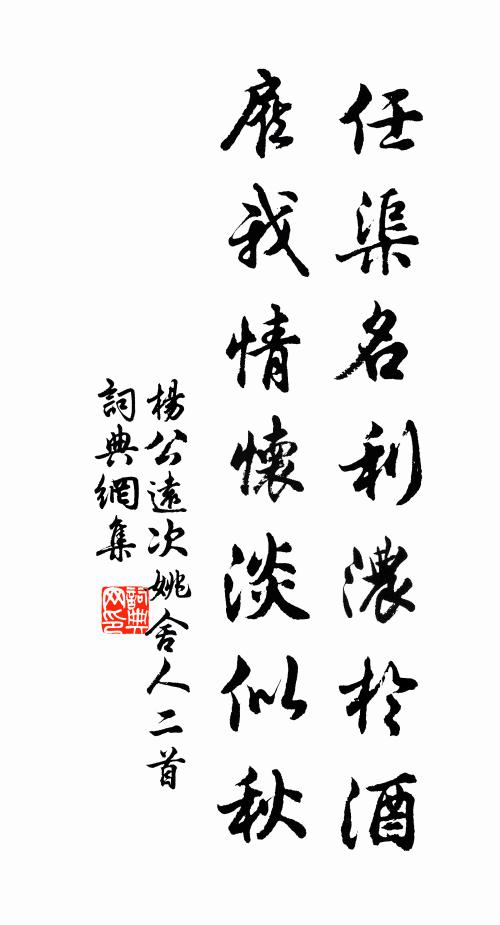 任渠名利濃於酒
我情懷淡似秋
楊公遠次姚舍人二首
詞典網集
詞典
网印